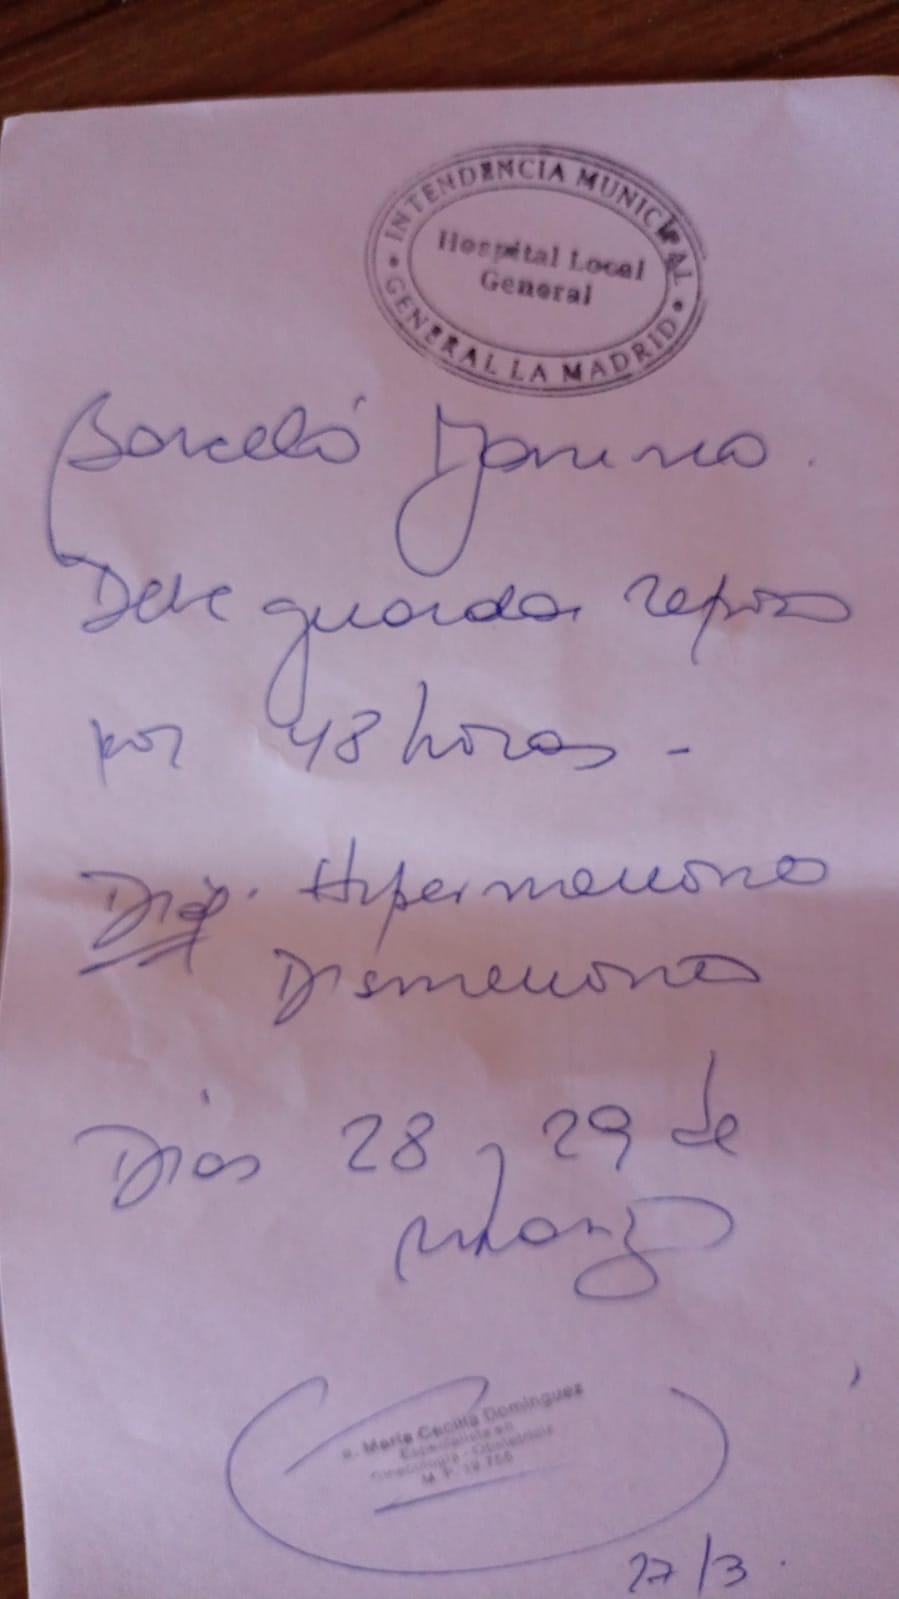 INTENDENCIA MUNICIPAL
Hospital Local
General
GENERAL LA MADRID
Barceló Yanina.
Debe guardar reposo
por 48 horas -
Diag. Hipermenorrea
Dismenorrea
Días 28 y 29 de
marzo
Maria Cecilia Dominguez
Especialista en
Ginecología - Obstetricia
M. P.
27/3.